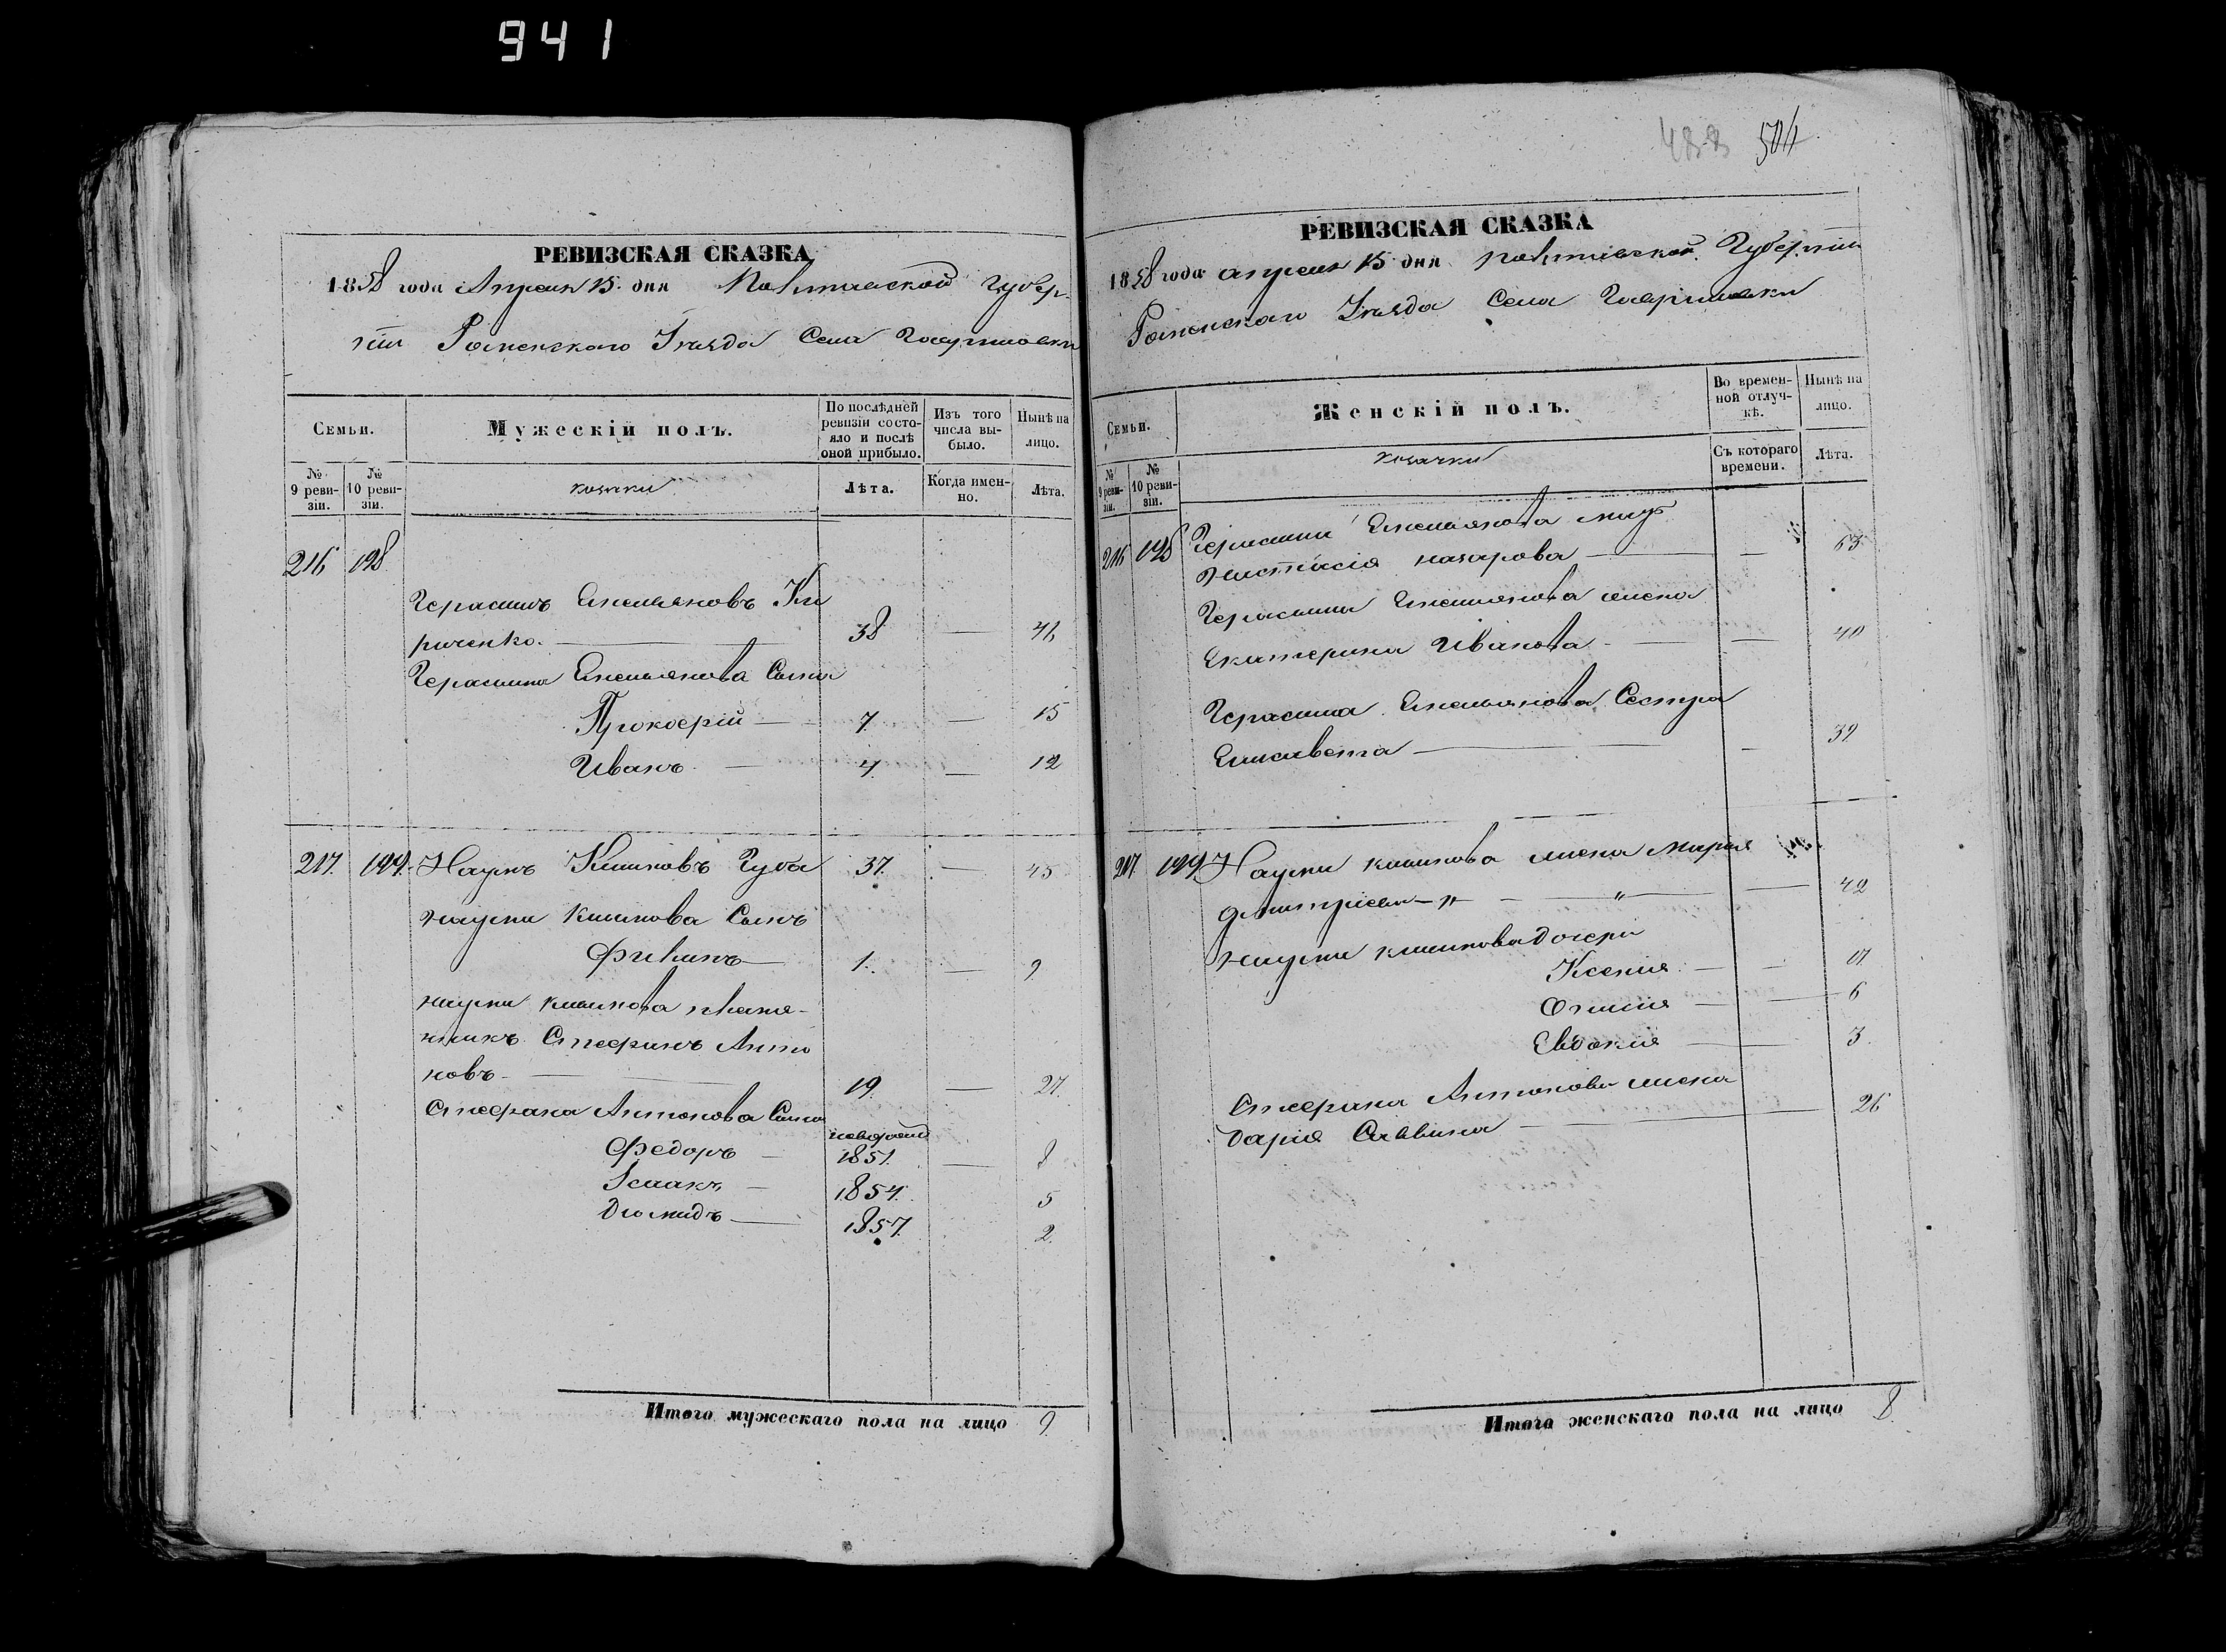 941
РЕВИЗСКАЯ СКАЗКА
1858 года Апреля 15 дня Полтавской Губер-
ніи Роменского Уезда Села
Семьи.
Мужескій полъ.
По послѣдней ревизіи состо-яло и послѣ оной прибыло.
Изъ того числа вы-было.
Нынѣ на лицо.
№ 9 реви-зіи.
№ 10 реви-зіи.
козаки
Лѣта.
Когда имен-но.
Лѣта.
216 198
Герасимъ Емельяновъ Ки
риченко. — 38 — 46
Герасима Емельянова Сыны
Прокофій — 7. — 15
Иванъ. — 4. — 12
217. 199. Наумъ Климовъ Губа 37. — 45
Наума Климова Сынъ
1. — 9.
Наума Климова племя-
нникъ Стефанъ Анто
новъ — 19. — 27.
Стефана Антонова Сыны
Федоръ — 1851. — 8
Исаакъ — 1854. 5
Диомидъ — 1857. 2.
Итого мужескаго пола на лицо 9.
488 504
РЕВИЗСКАЯ СКАЗКА
1858 года апреля 15 дня Полтавской Губерніи
Роменскаго Уезда Села
Семьи.
Женскій полъ.
Во времен-ной отлуч-кѣ.
Нынѣ на лицо.
№ 9 реви-зіи.
№ 10 реви-зіи.
козачки
Съ котораго времени.
Лѣта.
216 198 Герасима Емельянова мать
Настасія назарова — — 63.
Герасима Емельянова жена
Екатерина Иванова — — 40
Герасима Емельянова Сестра
Елисавета — — 39
217. 199. Наума климова жена Марія
Дмитріева — „ — „ — 42
Наума климова дочери
Ксенія — — 17
— 6
Евдокія — 3.
Стефана Антонова жена
Дарія Саввина — 26
Итого женскаго пола на лицо 8.